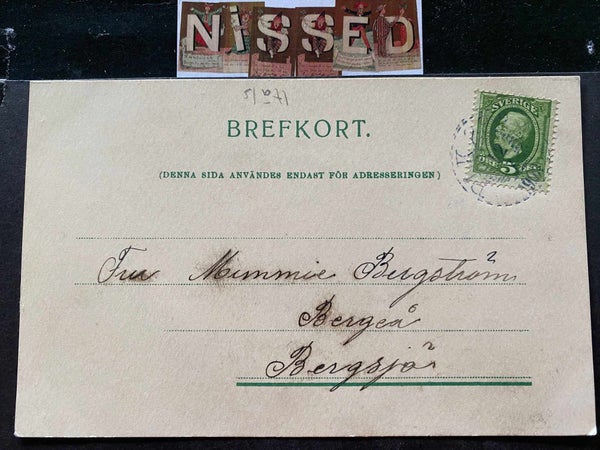 NISSED
17 a/s
BREFKORT.
(DENNA SIDA ANVÄNDES ENDAST FÖR ADRESSERINGEN)
SVERIGE
ÖRE 5 ÖRE
Fru Mimmie Bergström
Bergeå
Bergsjö